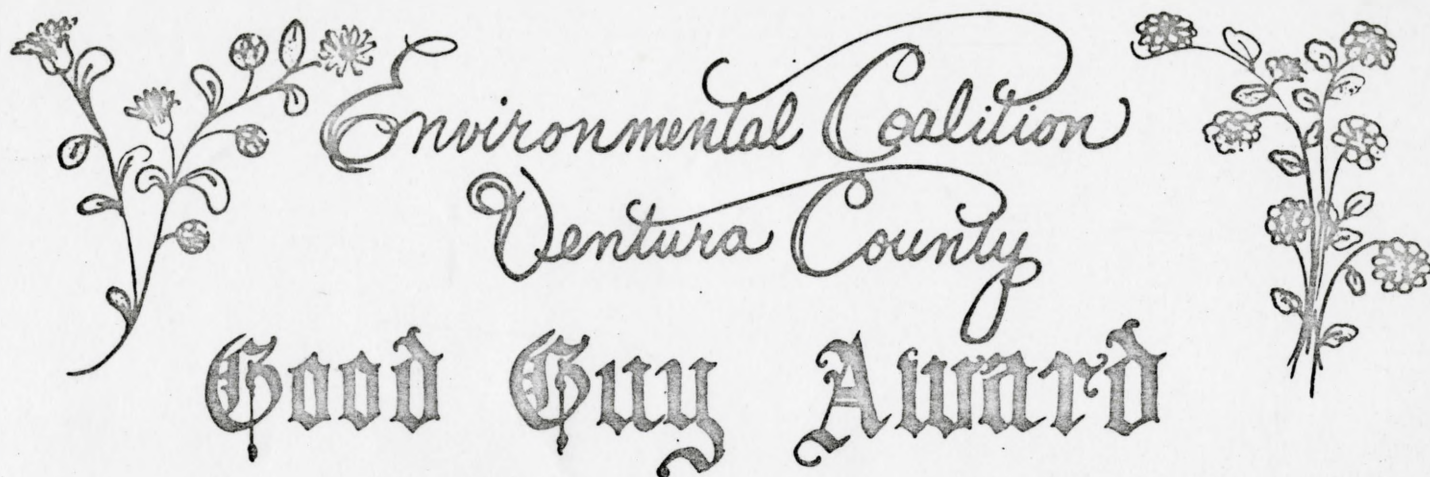 Environmental Coalition
Ventura County
Good Guy Award